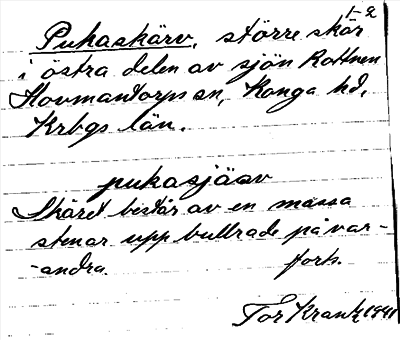 1-2
Pukaskärv, större skär
i östra delen av sjön Rottnen
Hovmantorps sn, Konga hd,
Krbgs län.
pukasjäov
Skäret består av en massa
stenar upp bullrade på var-
-andra. forts.
Tor Krantz 1941